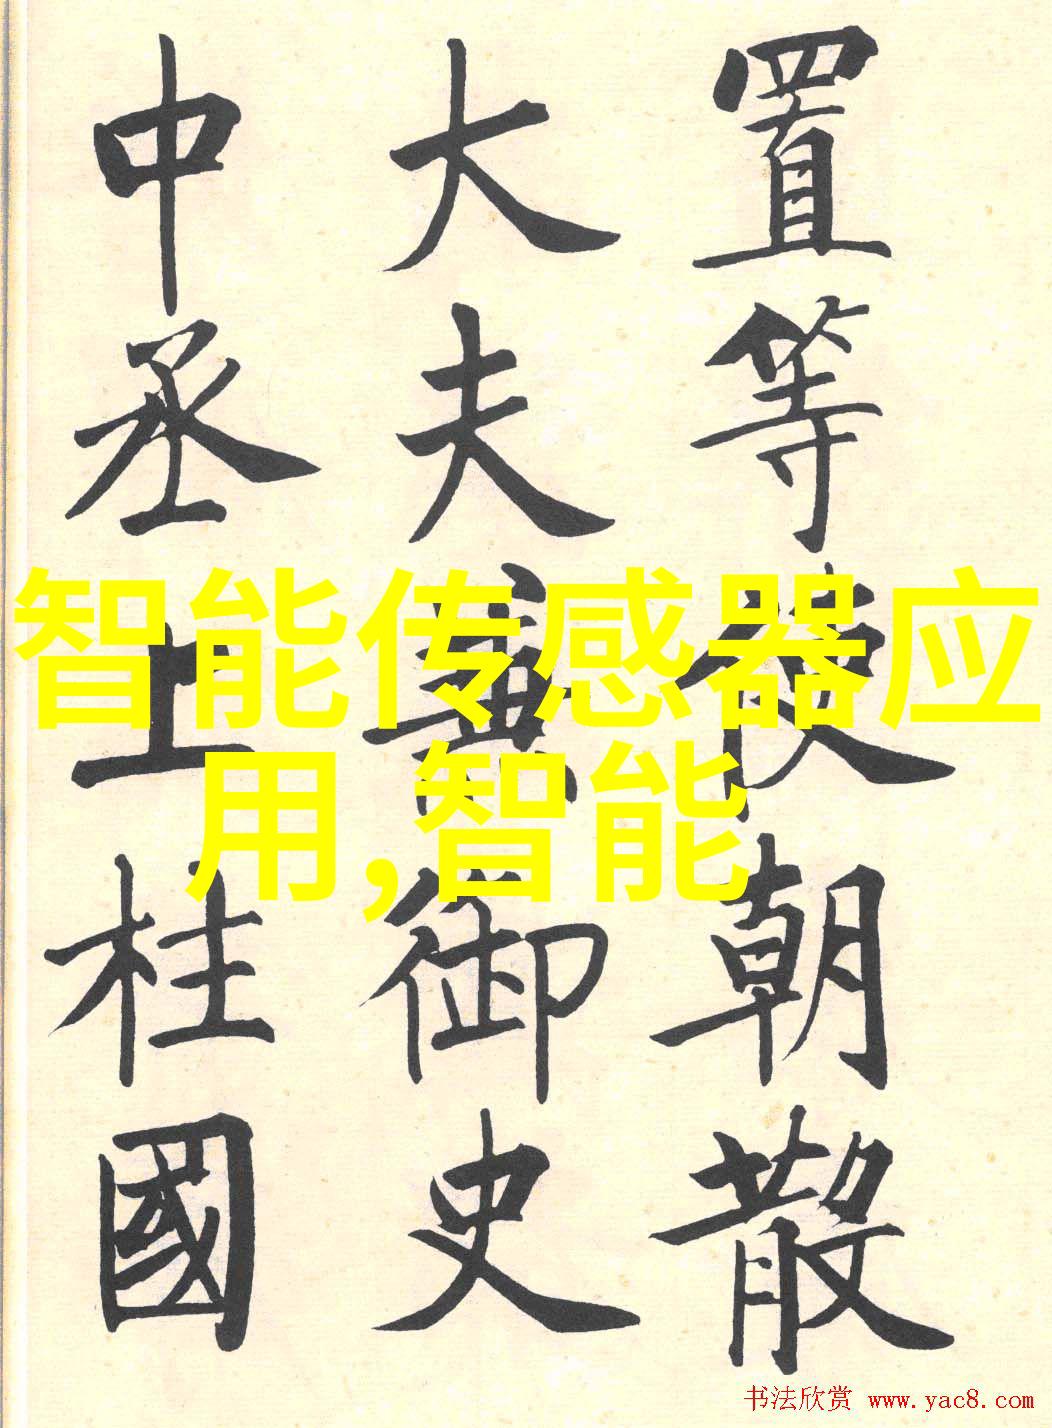 置等使朝散
大夫兼御史
中丞上柱國
智能传感器应
用,智能
书法欣赏 www.yac8.com